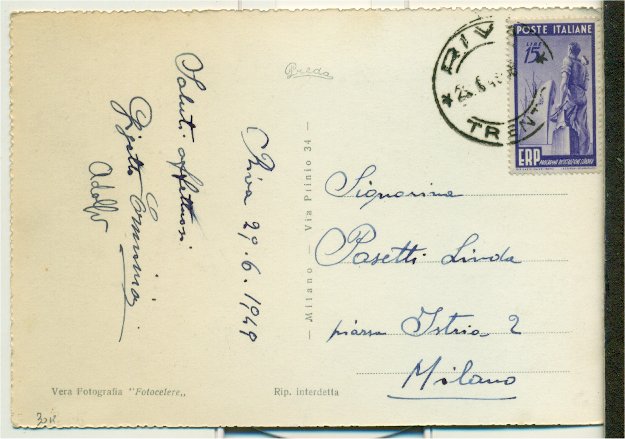 Saluti affettuosi
Adolfo
Riva 29.6.1949
Breda
— Milano — Via Plinio 34 —
Vera Fotografia "Fotocelere„
Rip. interdetta
RIVA
TRENTO
POSTE ITALIANE
LIRE 15
ERP
Signorina
Pasetti Linda
piazza Istria 2
Milano